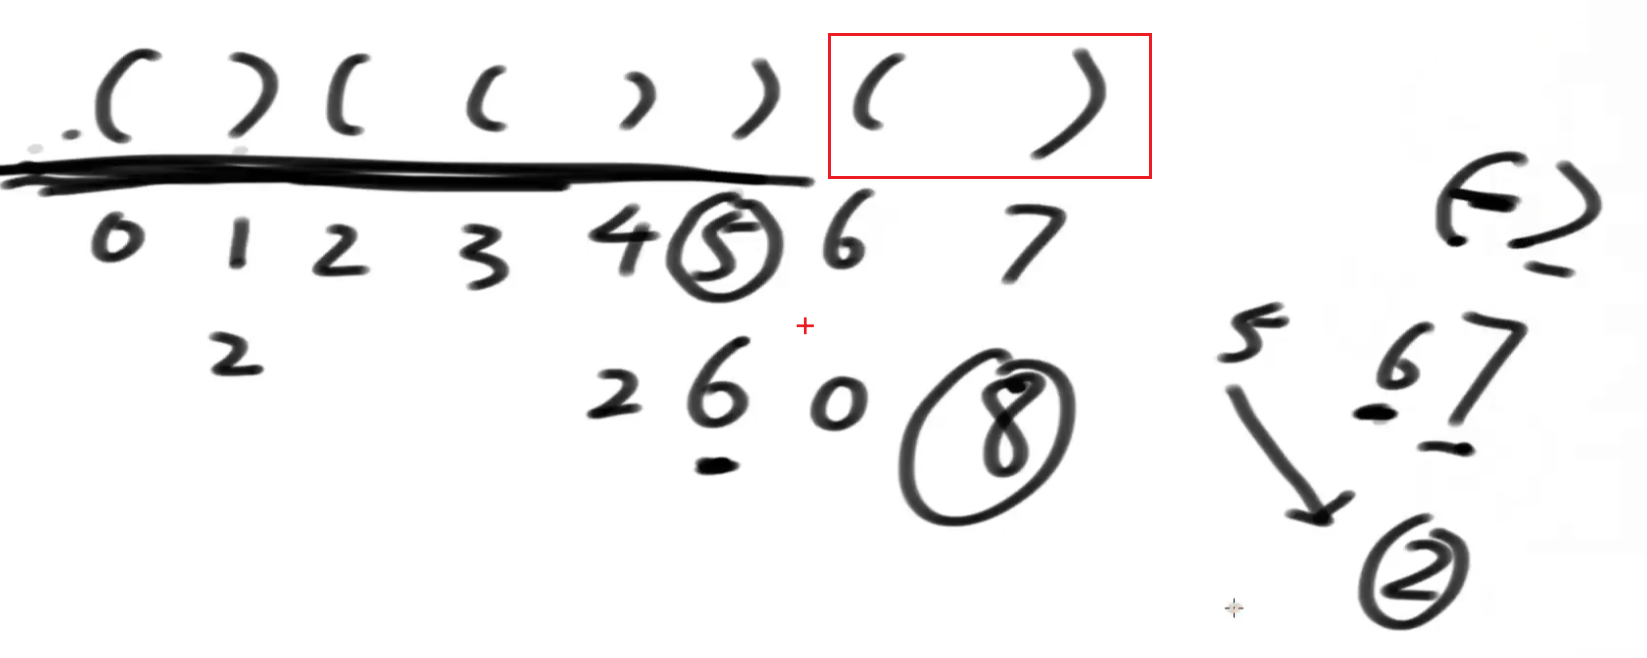 ( ) ( ( ) ) ( )
0 1 2 3 4 5 6 7
2 2 6 0 8
( - )
5 6 7
2